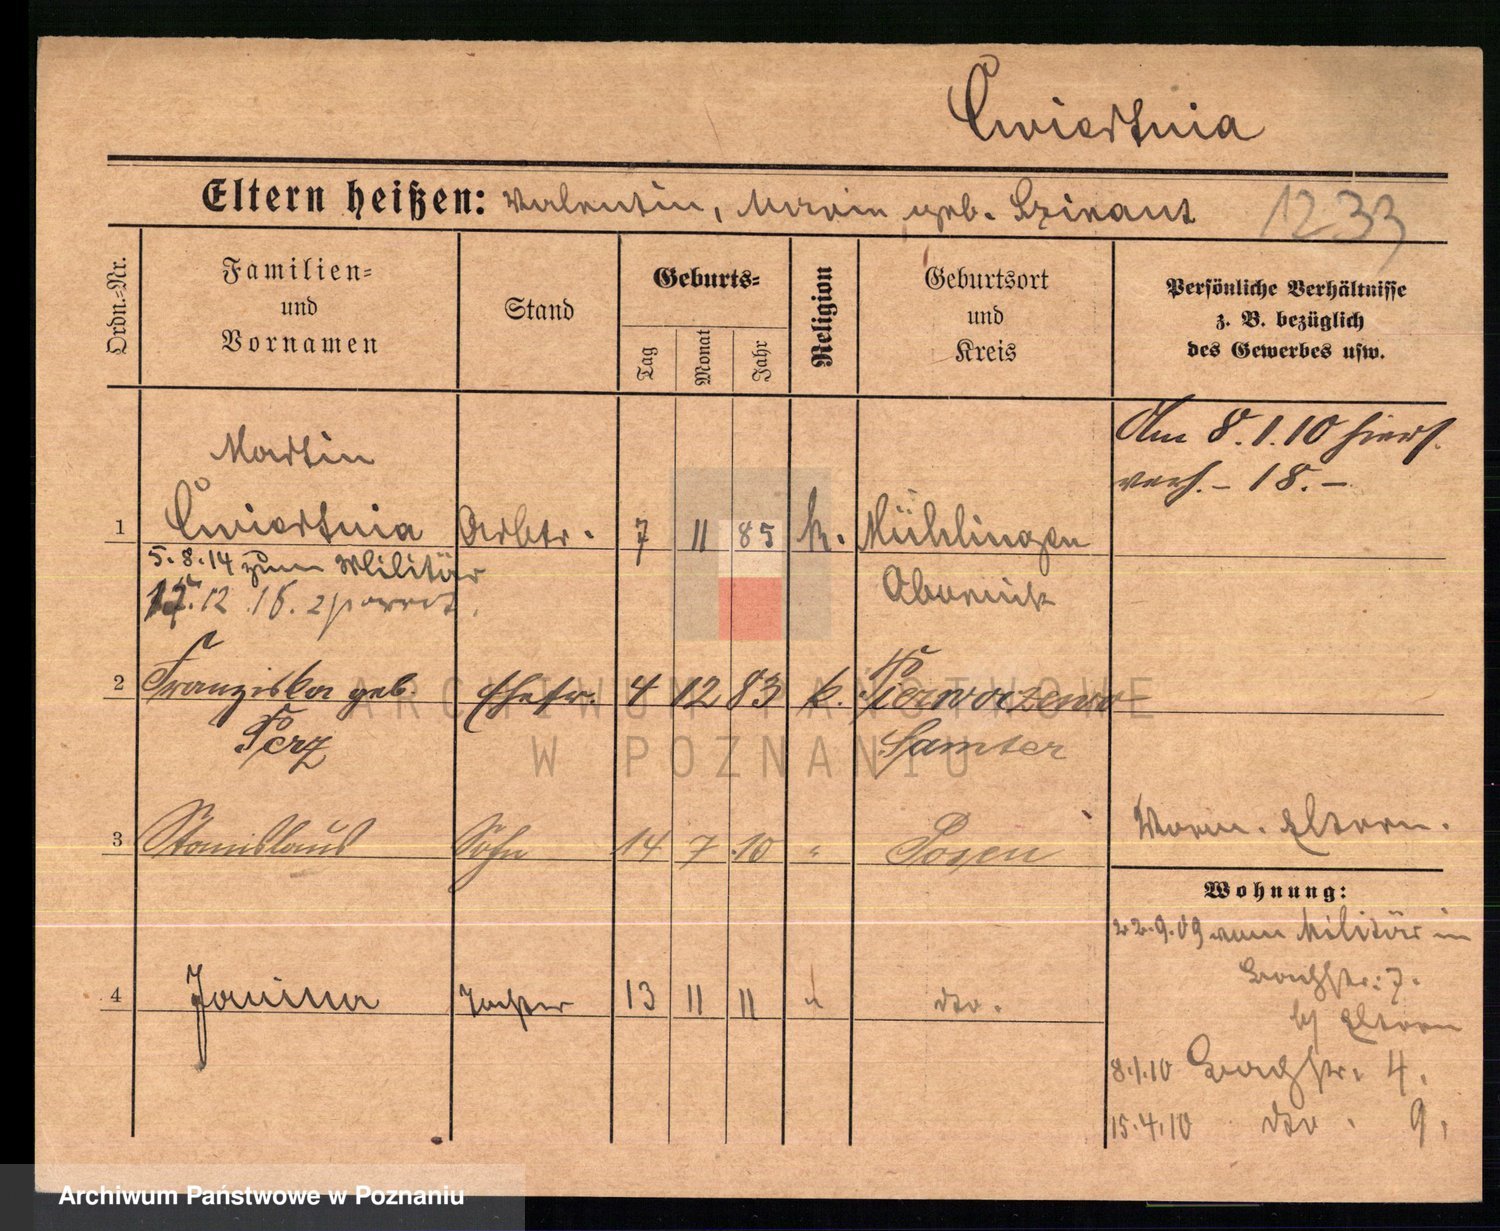 Cwiertnia
Eltern heißen: Valentin, Maria geb.
1233
Ordn.-Nr.
Familien-
und
Vornamen
Stand
Geburts-
Tag
Monat
Jahr
Religion
Geburtsort
und
Kreis
Persönliche Verhältnisse
z. B. bezüglich
des Gewerbes usw.
Am 8.1.10 hiers.
verh. – 18. –
Martin
1 Cwiertnia Arbtr. 7 11 85 k. Mühlingen
5.8.14 zum Militär Obornik
17.12.16.
2 Franziska geb. Ehefr. 4 12 83 k. Pierwoszewo
Perz Samter
3 Stanislaus Sohn 14 7 10 " Posen
Vorm. Eltern.
Wohnung:
22.9.09 vom Militär in
Bachstr. 7.
bj Eltern
4 Janina Tochter 13 11 11 " dto.
8.1.10 Bachstr. 4.
15.4.10 dto. 9.
ARCHIWUM PAŃSTWOWE
W POZNANIU
Archiwum Państwowe w Poznaniu